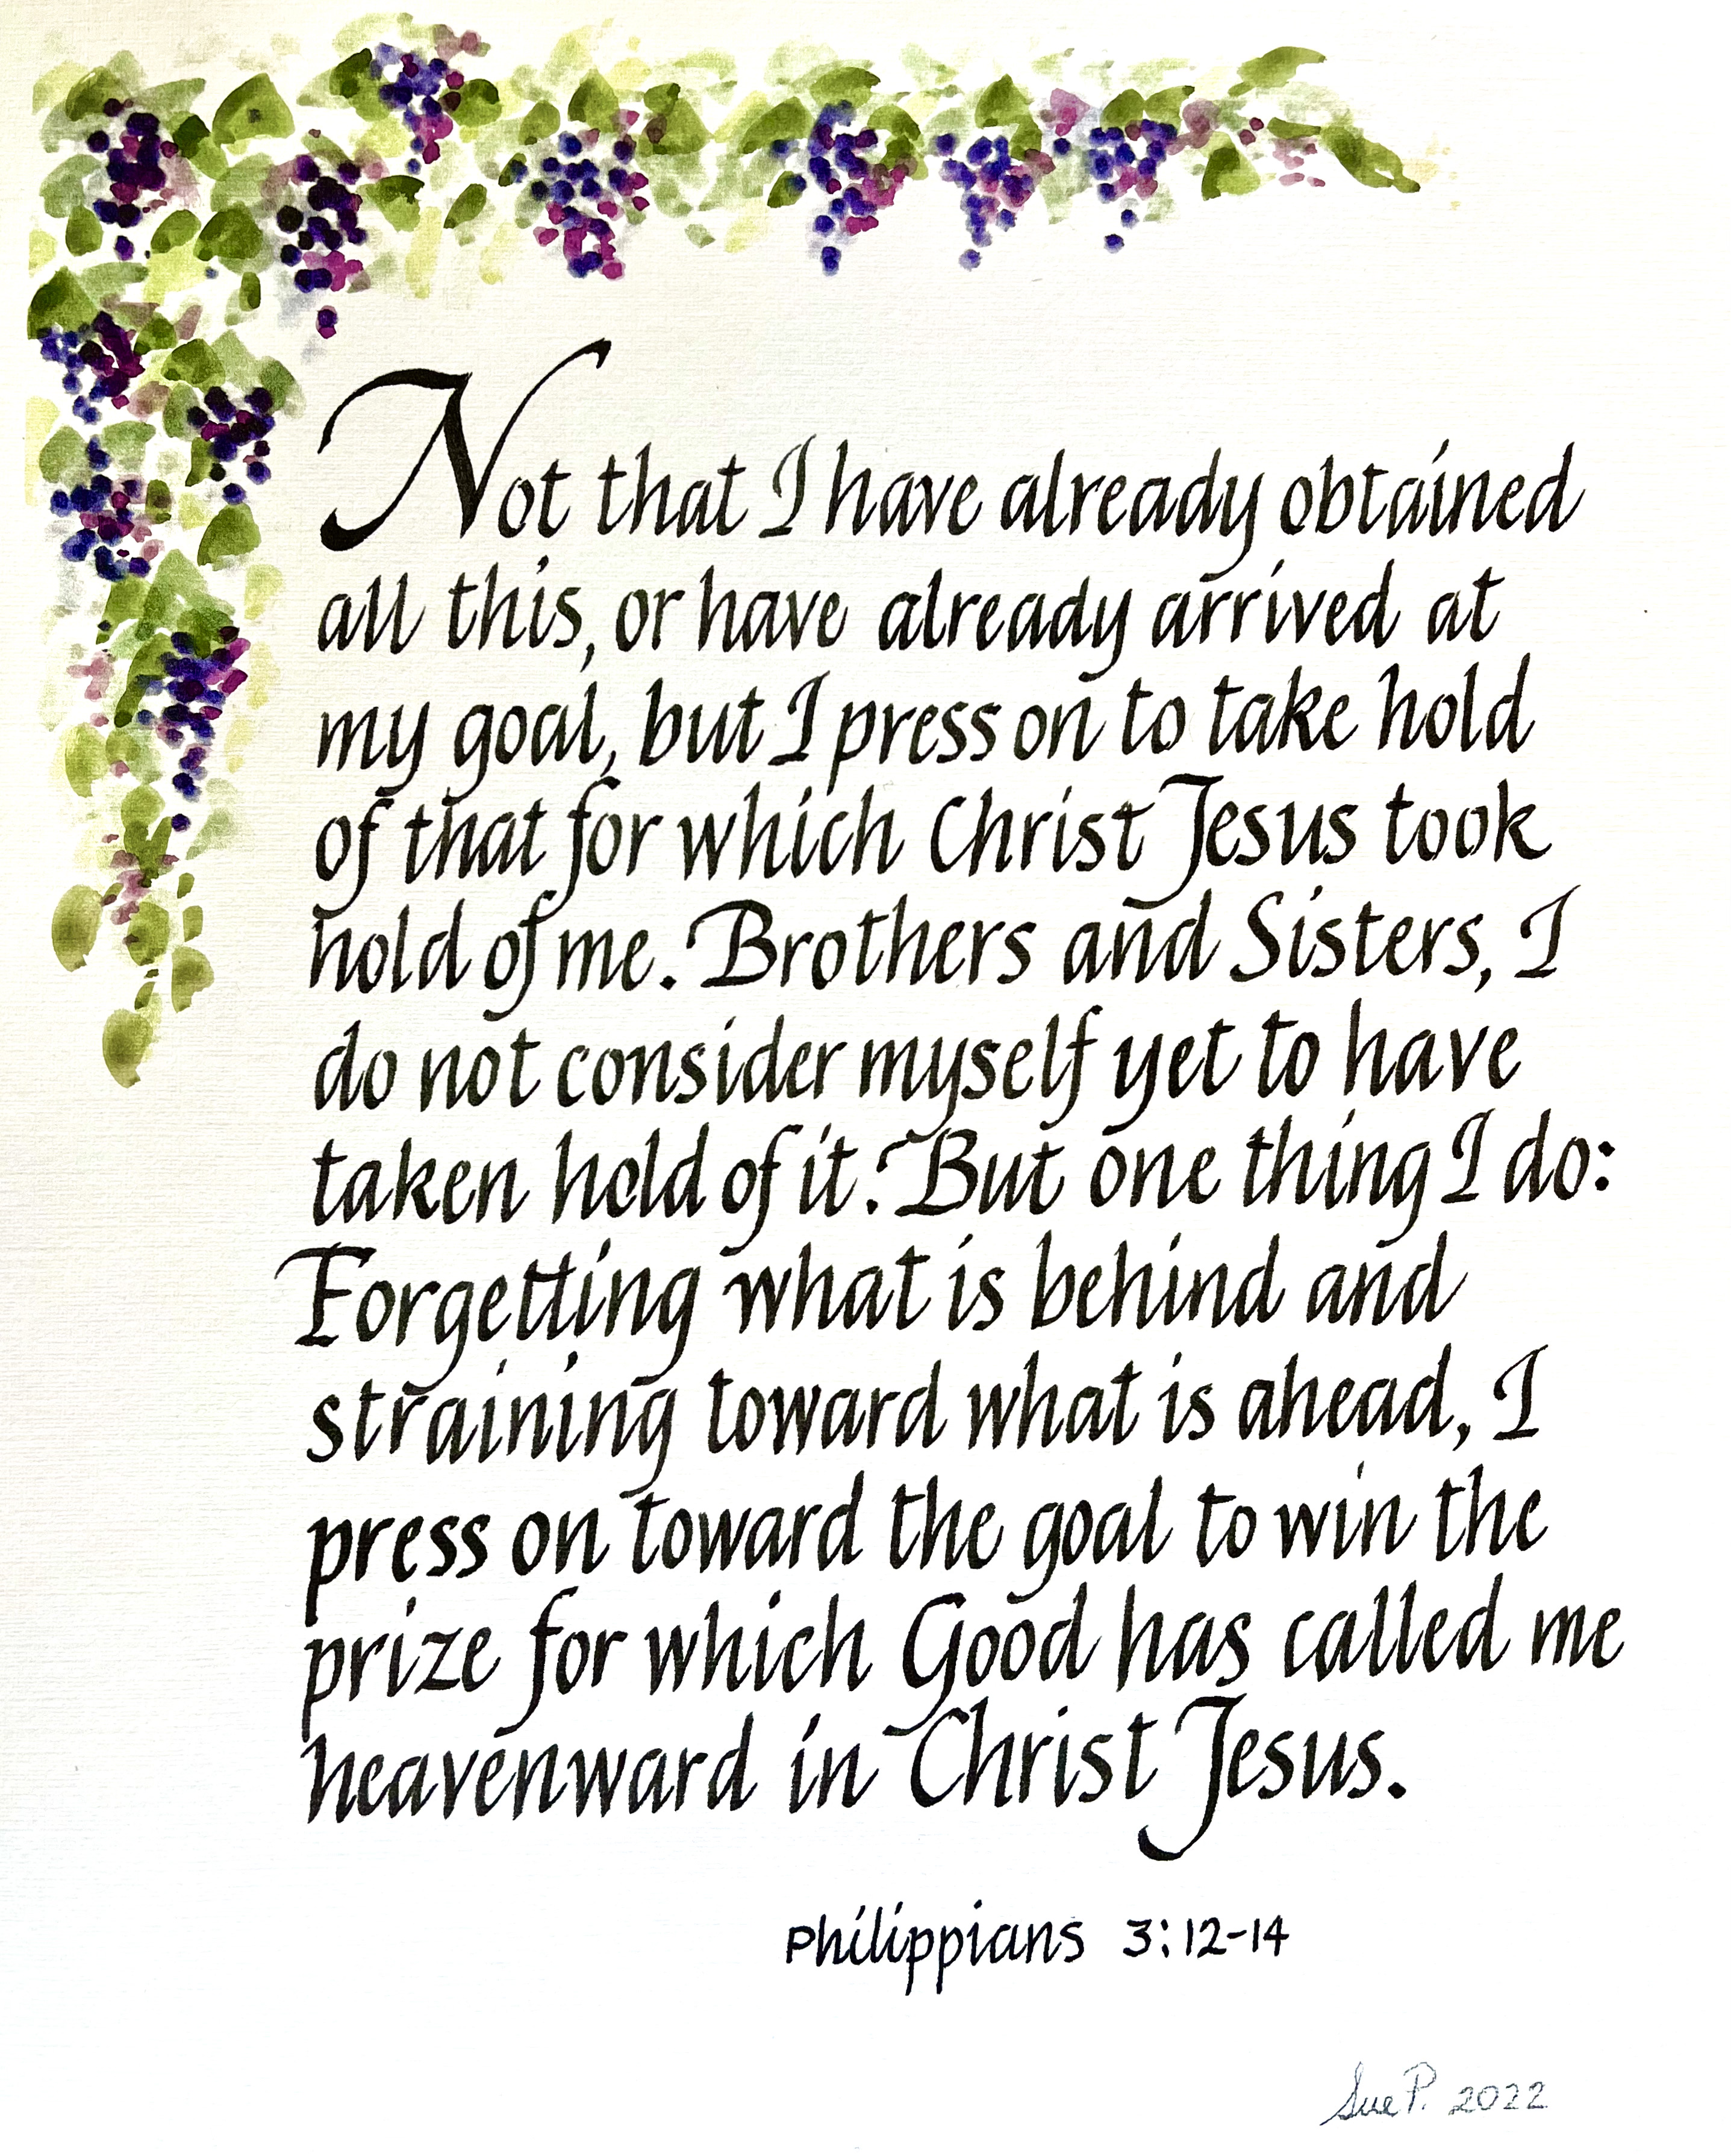 Not that I have already obtained
all this, or have already arrived at
my goal, but I press on to take hold
of that for which Christ Jesus took
hold of me. Brothers and Sisters, I
do not consider myself yet to have
taken hold of it. But one thing I do:
Forgetting what is behind and
straining toward what is ahead, I
press on toward the goal to win the
prize for which Good has called me
heavenward in Christ Jesus.
Philippians 3:12-14
Sue P. 2022